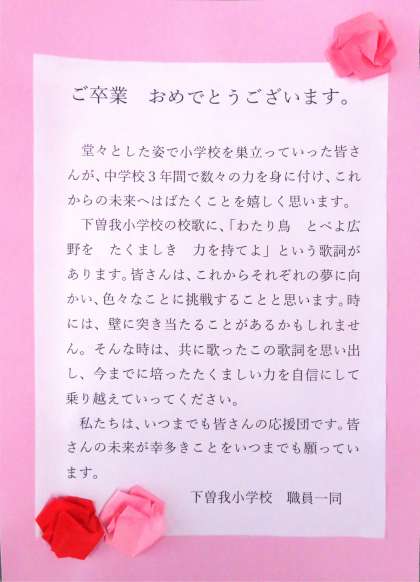 ご卒業　おめでとうございます。
　堂々とした姿で小学校を巣立っていった皆さ
んが、中学校３年間で数々の力を身に付け、これ
からの未来へはばたくことを嬉しく思います。
　下曽我小学校の校歌に、「わたり鳥　とべよ広
野を　たくましき　力を持てよ」という歌詞が
あります。皆さんは、これからそれぞれの夢に向
かい、色々なことに挑戦することと思います。時
には、壁に突き当たることがあるかもしれませ
ん。そんな時は、共に歌ったこの歌詞を思い出
し、今までに培ったたくましい力を自信にして
乗り越えていってください。
　私たちは、いつまでも皆さんの応援団です。皆
さんの未来が幸多きことをいつまでも願ってい
ます。
下曽我小学校　職員一同